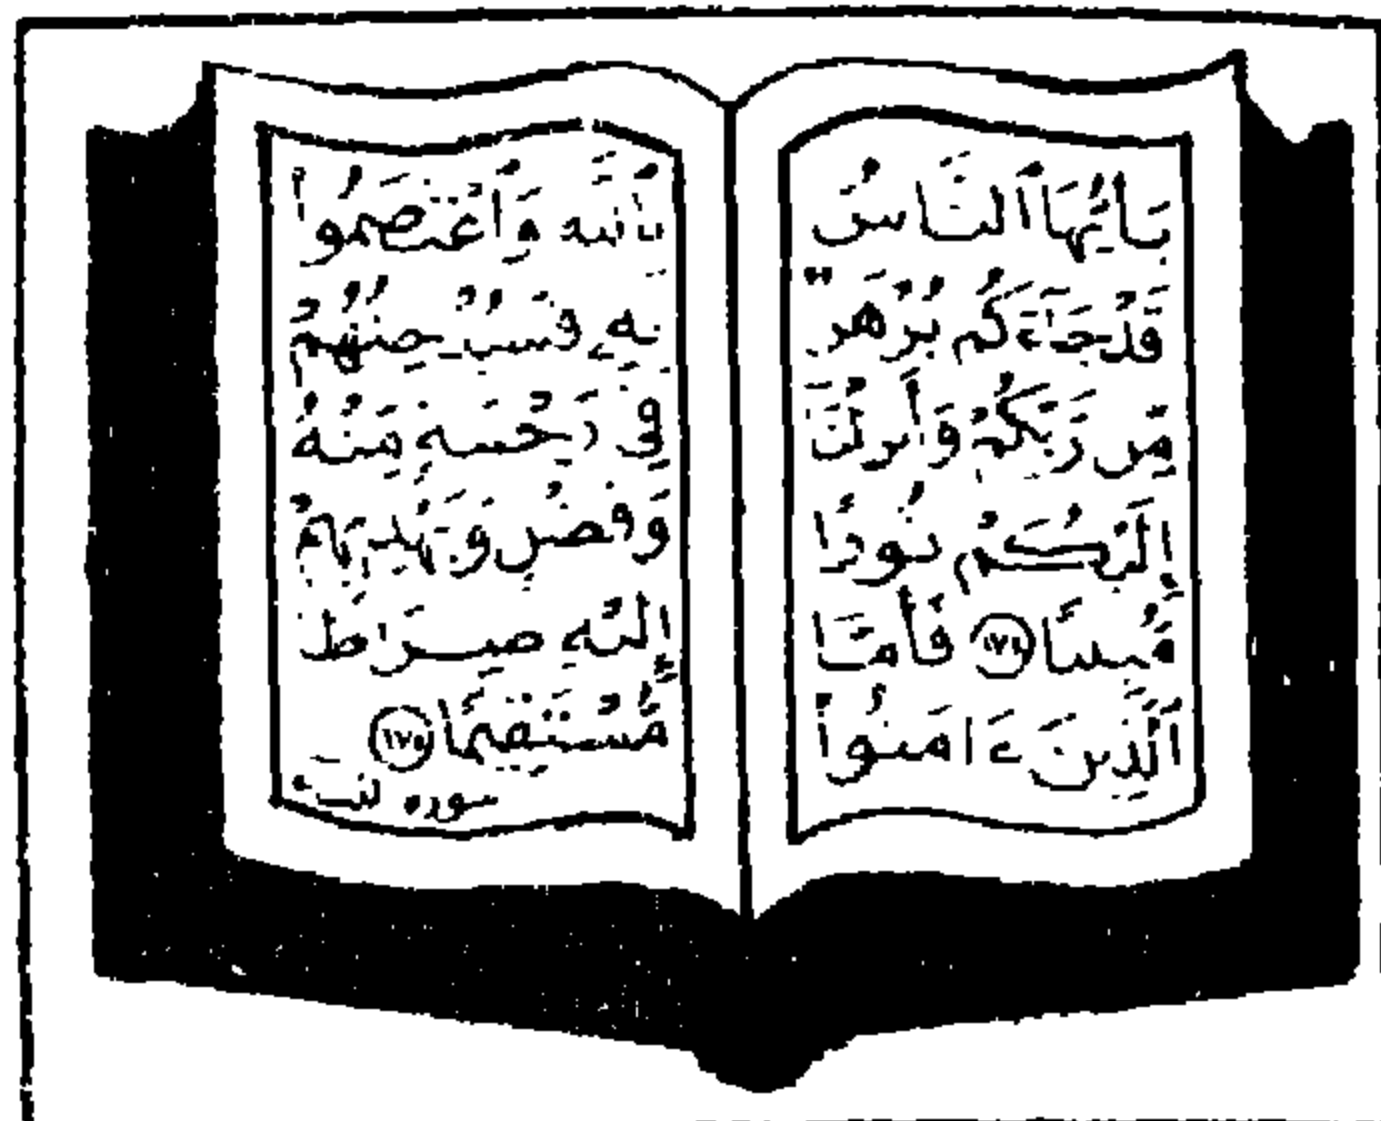 يَـٰٓأَيُّهَا ٱلنَّاسُ
قَدْ جَآءَكُم بُرْهَـٰنٌ
مِّن رَّبِّكُمْ وَأَنزَلْنَآ
إِلَيْكُمْ نُورًا
مُّبِينًا ١٧٤ فَأَمَّا
ٱلَّذِينَ ءَامَنُوا۟
بِٱللَّهِ وَٱعْتَصَمُوا۟
بِهِۦ فَسَيُدْخِلُهُمْ
فِى رَحْمَةٍ مِّنْهُ
وَفَضْلٍ وَيَهْدِيهِمْ
إِلَيْهِ صِرَٰطًا
مُّسْتَقِيمًا ١٧٥
سورة النساء